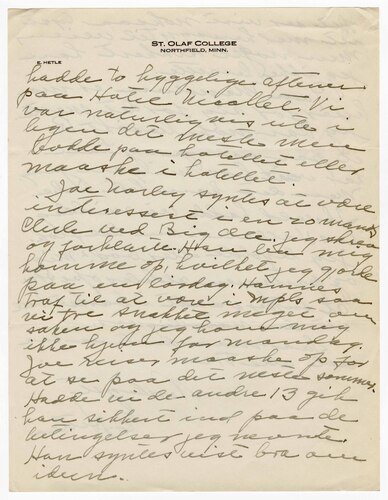 St. Olaf College
Northfield, Minn.
E. Hetle
hadde to hyggelige aftener
paa Hotel Nicollet. Vi
var naturligvis ute i
byen det meste men
bodde paa hotellet eller
maaske i hotellet.
Joe syntes at være
interessert i en
ved Big Jeg skrev
og forklarte. Han bea mig
komme op, hvilket jeg gjorde
paa en lördag. Hannes
traf til at være i Mpls saa
vi tre snakket meget om
saken og jeg kom mig
ikke hjem før mandag.
Joe reiser maaske op for
at se paa det neste sommer.
Hadde vi de andre 13 gik
han sikkert ind paa de
betingelser jeg nevnte.
Han syntes visst bra om
ideen.